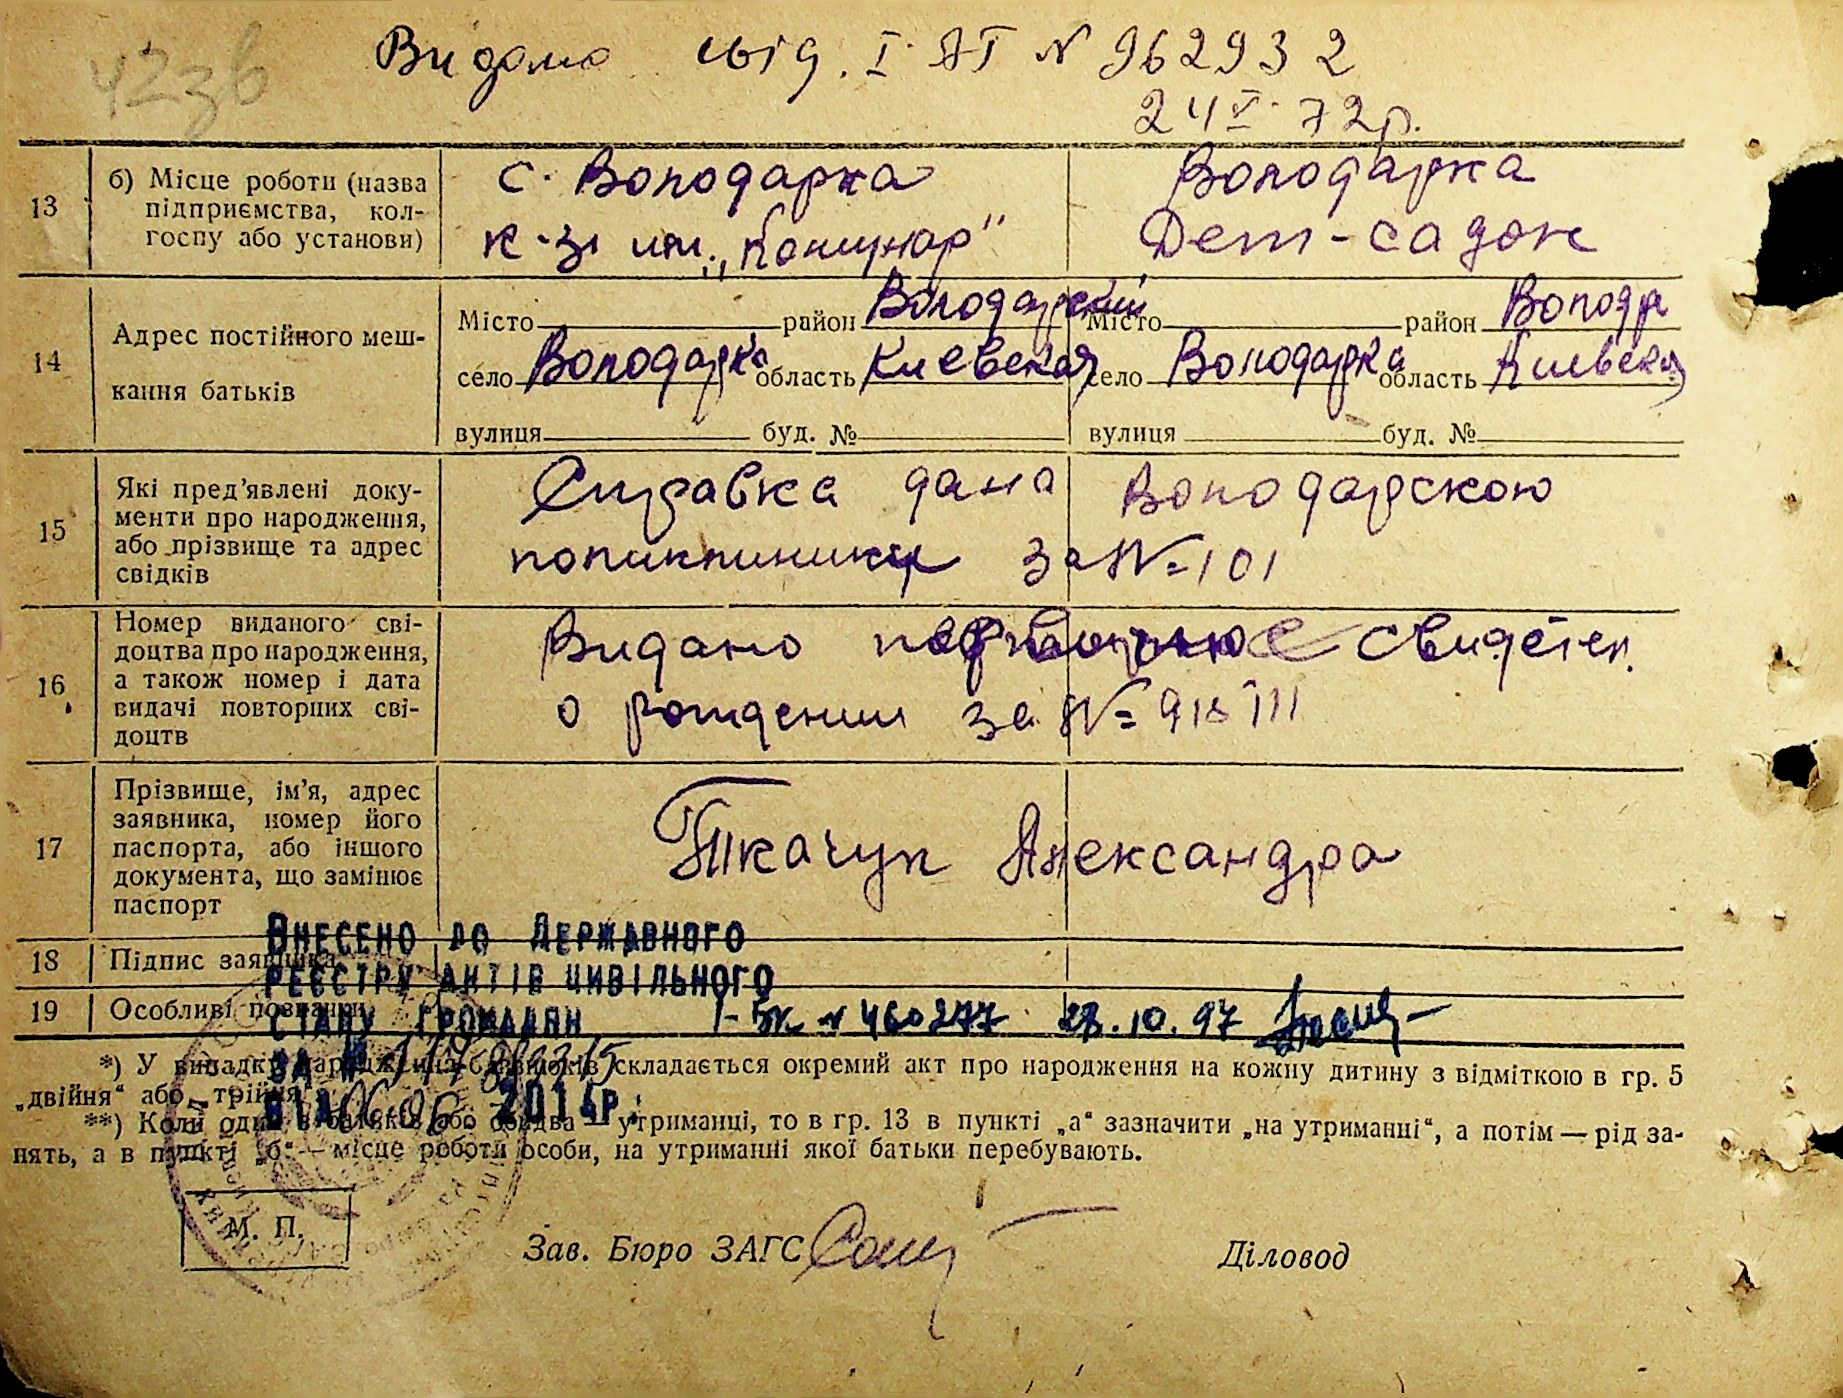 423б
Видано свід. І-АП N 962932
24 V 72р.
13 б) Місце роботи (назва підприємства, колгоспу або установи)
с. Володарка Володарка
к-з им. „Комунар" Дет-садок
14 Адрес постійного мешкання батьків
Місто район Володарский Місто район Володар
село Володарка область Киевская село Володарка область Киевская
вулиця буд. № вулиця буд. №
15 Які пред'явлені документи про народження, або прізвище та адрес свідків
Справка дана Володарскою
поликлиникы за № 101
16 Номер виданого свідоцтва про народження, а також номер і дата видачі повторних свідоцтв
Видано повторное свидетел.
о рождении за №
17 Прізвище, ім'я, адрес заявника, номер його паспорта, або іншого документа, що замінює паспорт
Ткачук Александра
Внесено до Державного
18 Підпис заявника
реєстру актів цивільного
19 Особливі позначки
стану громадян I-БК N 460277 28.10.97
за №
від 06.06. 2014р.
*) У випадку народження близнюків складається окремий акт про народження на кожну дитину з відміткою в гр. 5
„двійня“ або „трійня“.
**) Коли один з батьків або обидва — утриманці, то в гр. 13 в пункті „а“ зазначити „на утриманні“, а потім — рід за-
нять, а в пункті „б“ — місце роботи особи, на утриманні якої батьки перебувають.
М. П.
Зав. Бюро ЗАГС Діловод